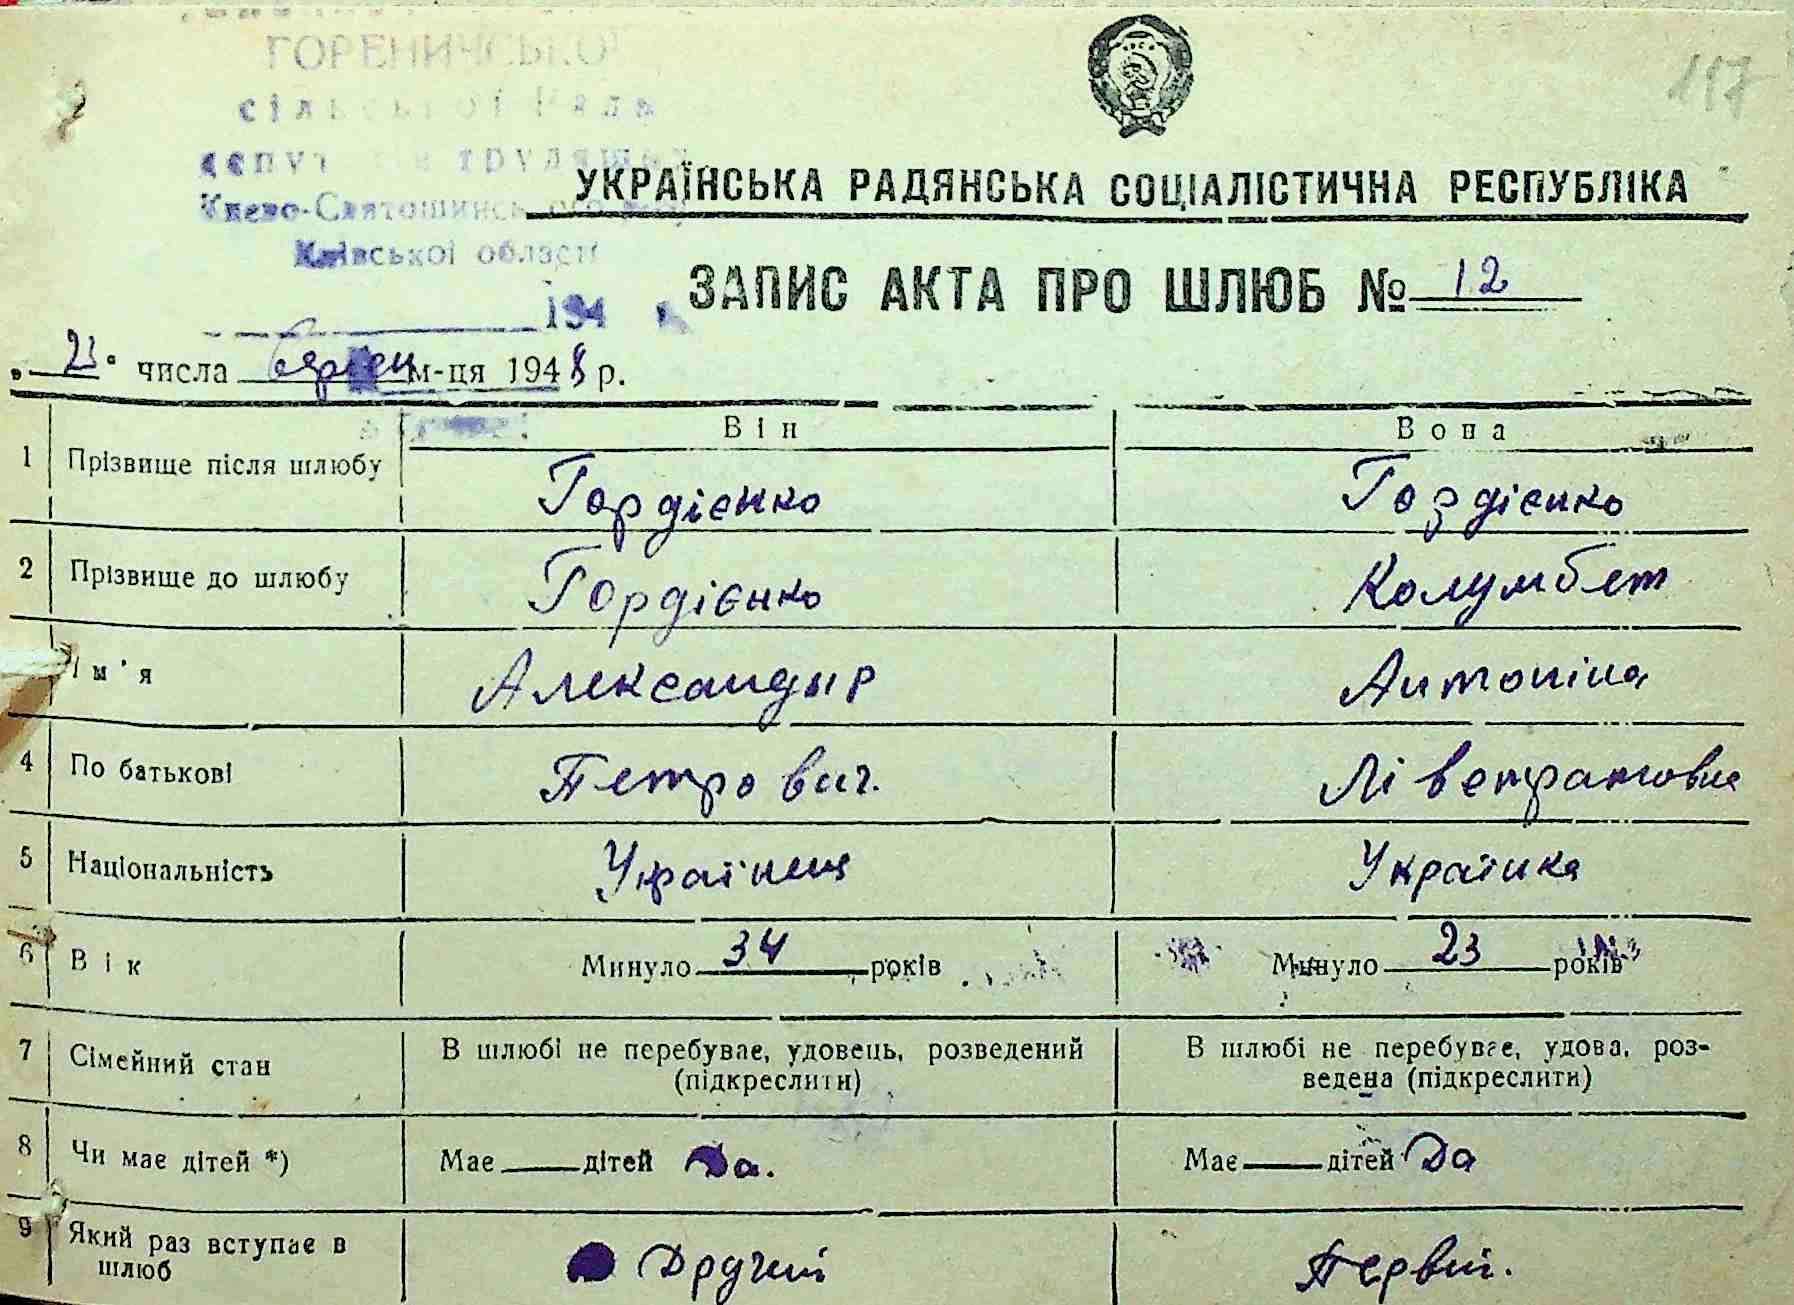 117
ГОРЕНИЧСЬКОЇ
сільської Ради
депутатів трудящих
Києво-Святошинського
Київської області
194
УКРАЇНСЬКА РАДЯНСЬКА СОЦІАЛІСТИЧНА РЕСПУБЛІКА
ЗАПИС АКТА ПРО ШЛЮБ № 12
„ 23 “ числа м-ця 1948 р.
Він Вона
1 Прізвище після шлюбу Гордієнко Гордієнко
2 Прізвище до шлюбу Гордієнко Колумбет
Ім'я Александыр Антоніна
4 По батькові Петрович. Лі ветратовна
5 Національність Українец Українка
6 Вік Минуло 34 років Минуло 23 років
7 Сімейний стан В шлюбі не перебуває, удовець, розведений В шлюбі не перебуває, удова, роз-
(підкреслити) ведена (підкреслити)
8 Чи має дітей *) Має дітей Да. Має дітей Да
9 Який раз вступає в
шлюб Другий Первій.